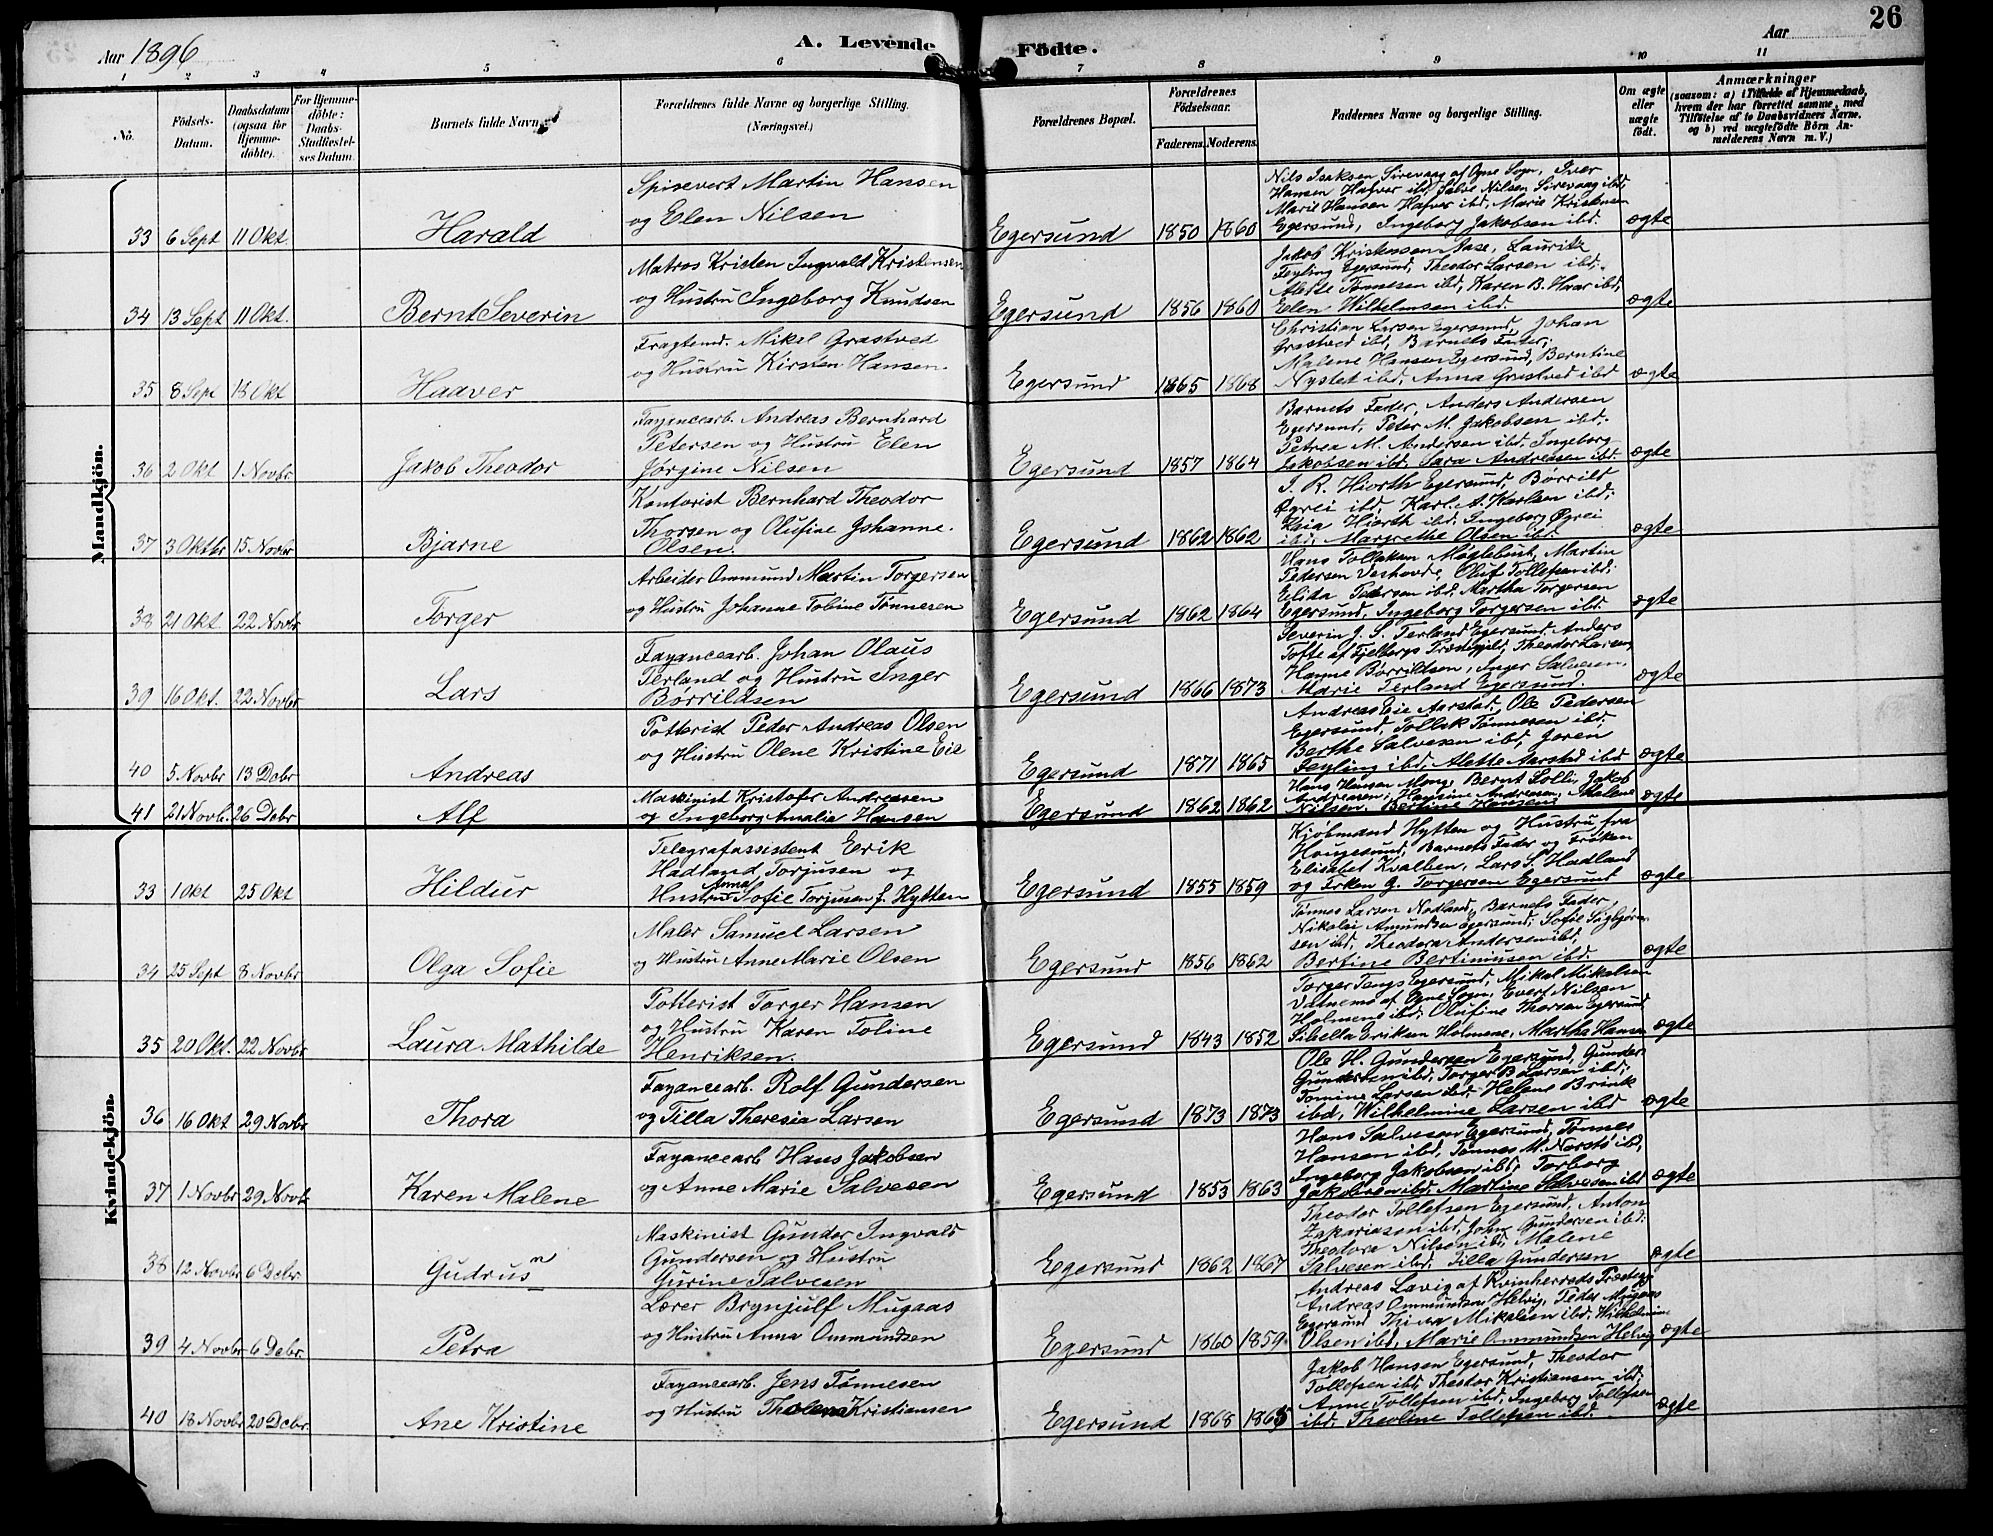 26
Aar 1896
A. Levende Födte.
Aar
1 2 3 4 5 6 7 8 9 10 11
No.
Födsels-Datum.
Daabsdatum (ogsaa for Hjemmedöbte).
For Hjemmedöbte: Daabs-Stadfæstelses Datum.
Barnets fulde Navn
Forældrenes fulde Navne og borgerlige Stilling.
(Næringsvei.)
Forældrenes Bopæl.
Forældrenes Födselsaar.
Faderens. Moderens.
Faddernes Navne og borgerlige Stilling.
Om ægte eller uægte födt.
Anmærkninger
(saasom: a) i Tilfælde af Hjemmedaab,
hvem der har forrettet samme, med
Tilföielse af to Daabsvidners Navne,
og b) ved uægtefödte Börn Anmelderens Navn m. V.)
Mandkjön.
33 6 Sept 11 Okt Harald
Spisevert Martin Hansen
og Elen Nilsen
Egersund 1850 1860
Nils Isaksen Sirevaag af Ogne Sogn, Iver
Hansen Hafver ibd, Nilsen Sirevaag ibd,
Marie Hansen ibd, Marie Kristensen
Egersund, Ingeborg Jakobsen ibd.
ægte
34 13 Sept 11 Okt. Bernt Severin
Matros Kristen Ingvald Kristensen
og Hustru Ingeborg Knudsen
Egersund 1856 1860
Jakob Kristenssen Aase, Lauritz
Feyling Egersund, Theodor Larsen ibd;
Alette Tønnesen ibd, Karen B. Haar ibd,
Elen Wilhelmsen ibd.
ægte
35 8 Sept 18 Okt Haaver
Fragtemd. Mikal Grastved
og Hustru Kirsten Hansen.
Egersund 1865 1868
Christian Larsen Egersund, Johan
Grastved ibd, Barnets Fader;
Malene Hansen Egersund, Berntine
Nystet ibd, Anna Grastved ibd
ægte
36 2 Okt 1 Novbr. Jakob Theodor
Fayancearb. Andreas Bernhard
Petersen og Hustru Elen
Jørgine Nilsen
Egersund 1857 1864
Barnets Fader, Anders Andersen
Egersund, Peter M. Jakobsen ibd;
Petrea M. Andersen ibd, Ingeborg
Jakobsen ibd, Sara Andreasen ibd.
ægte
37 3 Oktbr 15 Novbr Bjarne
Kontorist Bernhard Theodor
Thorsen og Olufine Johanne
Olsen.
Egersund 1862 1862
J. R. Hiorth Egersund, Børrild
Øgrei ibd, Karl. A. Karlsen ibd;
Kaia Hiorth ibd, Ingeborg Øgrei
ibd, Margrethe Olsen ibd.
ægte
38 21 Okt 22 Novbr Torger
Arbeider Ommund Martin Torgersen
og Hustru Johanne Tobine Tønnesen
Egersund 1862 1864
Hans Tollaksen Møglebust, Martin
Pedersen Veshovde, Oluf Tollefsen ibd;
Elida Pedersen ibd, Martha Torgersen
Egersund, Ingeborg Torgersen ibd.
ægte
39 16 Okt. 22 Novbr Lars
Fayancearb. Johan Olaus
Terland og Hustru Inger
Børrildsen
Egersund 1866 1873
Severin J. S. Terland Egersund, Anders
Tofte af Fjelbergs Præstegjeld, Theodor Larsen
Hanne Børrildsen, Inger Salvesen,
Marie Terland Egersund.
ægte
40 5 Novbr 13 Debr Andreas
Potterist Peder Andreas Olsen
og Hustru Olene Kristine Eie
Egersund 1871 1865
Andreas Eie Aarstad, Ole Pedersen
Egersund, Tollak Tønnesen ibd.
Berthe Salvesen ibd, Joren
Feyling ibd, Alette Aarstad ibd
ægte
41 21 Novb. 26 Debr Alf
Maskinist Kristofer Andreasen
og Ingeborg Amalia Hansen
Egersund 1862 1862
Hans Hansen Mong, Bernt Solli, Jakob
Andreasen; Andreasen, Malene
Nilsen, Hansen
ægte
Kvindekjön.
33 1 Okt 25 Okt Hildur
Telegrafassistent Erik
Hadland Torjusen og
Hustru Anna Sofie Torjusen f. Hytten
Egersund 1855 1859
Kjøbmand Hytten og Hustru fra
Haugesund, Barnets Fader og Frøken
Elisabet Kvalben, Lars S. Hadland
og Frken G. Torgersen Egersund
ægte
34 25 Sept 8 Novbr Olga Sofie
Maler Samuel Larsen
og Hustru Anne Marie Olsen
Egersund 1856 1862
Tønnes Larsen Nodland, Barnets Fader,
Nikolai Amundsen Egersund; Sofie Sigbjørnsen ibd, Theodora Andersen ibd,
Bertine Bertinussen ibd.
ægte
35 20 Okt. 22 Novbr Laura Mathilde
Potterist Torger Hansen
og Hustru Karen Toline
Henriksen.
Egersund 1843 1852
Torger Tengs Egersund, Mikal Mikalsen
Vatnemo af Ogne Sogn, Evert Nilsen
Holmene ibd; Olufine Thorsen Egersund
Sibella Eriksen Holmene, Martha Hansen
ægte
36 16 Okt 29 Novbr Thora
Fayancearb. Rolf Gundersen
og Tilla Theresia Larsen
Egersund 1873 1873
Ole H. Gundersen Egersund, Gunder
Gundersen ibd, Torger B Larsen ibd;
Tomine Larsen ibd, Helene Brink
ibd, Wilhelmine Larsen ibd
ægte
37 1 Novbr 29 Novb Karen Malene
Fayancearb Hans Jakobsen
og Anne Marie Salvesen
Egersund 1853 1863
Hans Salvesen Egersund, Tønnes
Hansen ibd, Tønnes M. Norstø ibd,
Ingeborg Jakobsen ibd, Torborg
Jakobsen ibd, Martine Salvesen ibd
ægte
38 12 Novbr 6 Debr Gudrun
Maskinist Gunder Ingvald
Gundersen og Hustru
Gurine Salvesen
Egersund 1862 1867
Theodor Tollefsen Egersund, Anton
Zakariasen ibd, John Gundersen ibd;
Theodora Nilsen ibd, Malene
Salvesen ibd, Tilla Gundersen
ægte
39 4 Novbr 6 Debr. Petra
Lærer Brynjulf Mugaas
og Hustru Anna Ommundsen
Egersund 1860 1859
Andreas Lavig af Kvinherreds Præsteg.
Andreas Ommundsen Helvig, Peder Mugaas
Egersund Thina Mikalsen ibd, Wilhelmine
Olsen ibd, Marie Ommundsen Helvig
ægte
40 18 Novbr 20 Debr. Ane Kristine
Fayancearb. Jens Tønnesen
og Hustru Tholena Kristiansen
Egersund 1868 1865
Jakob Hansen Egersund, Theodor
Tollefsen ibd, Theodor Kristiansen ibd;
Anne Tollefsen ibd, Ingeborg Tollefsen
ibd, Theoline Tollefsen ibd.
ægte